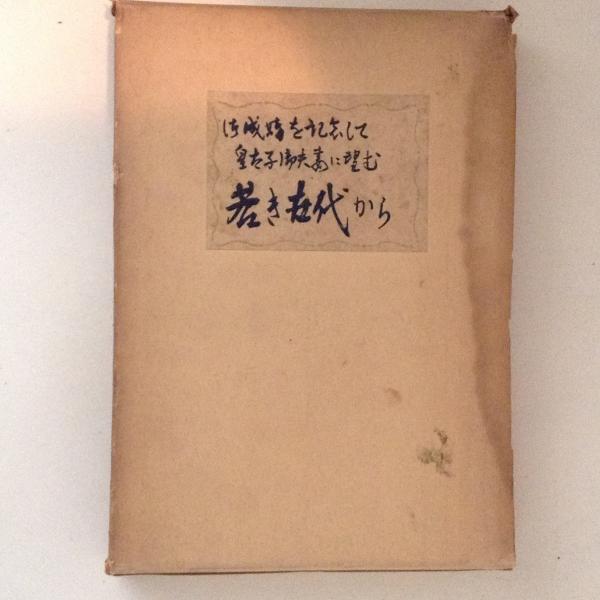 御成婚を記念して
皇太子御夫妻に望む
若き世代から